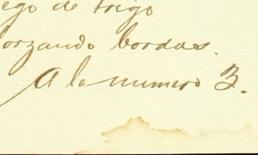 ego de trigo
orzando bordas.
A la numero 3.